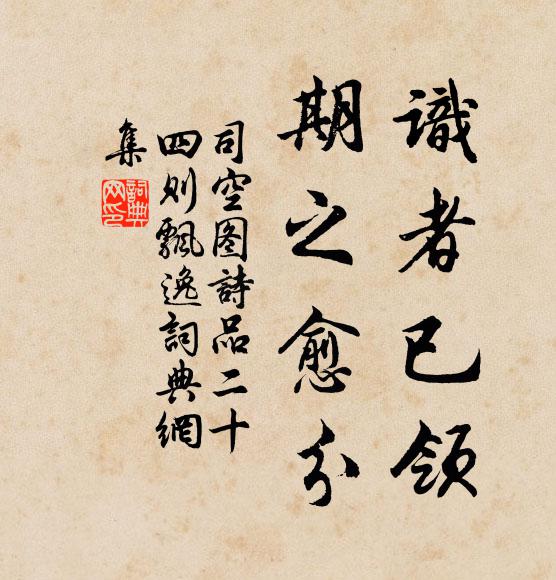 識者已領
期之愈分
司空图詩品二十
四则飄逸詞典網
集
詞典网印